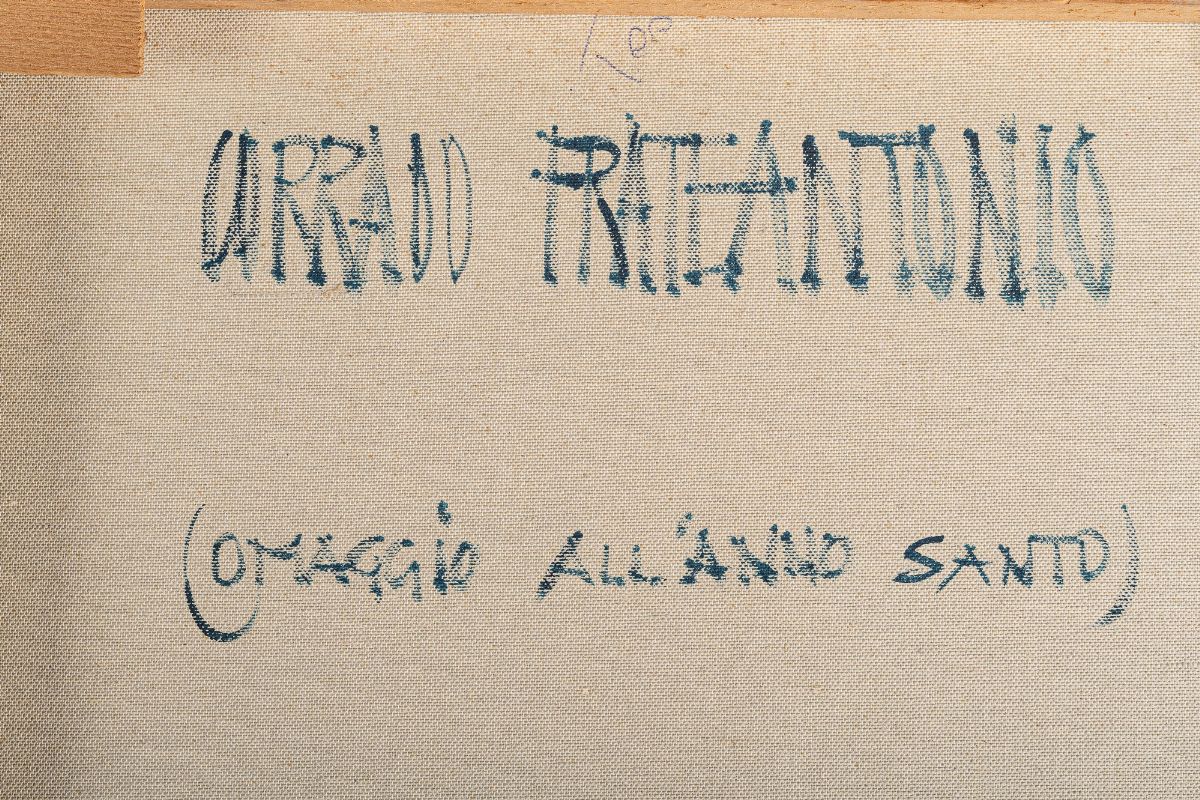 CORRADO FRATEANTONIO
(OMAGGIO ALL'ANNO SANTO)